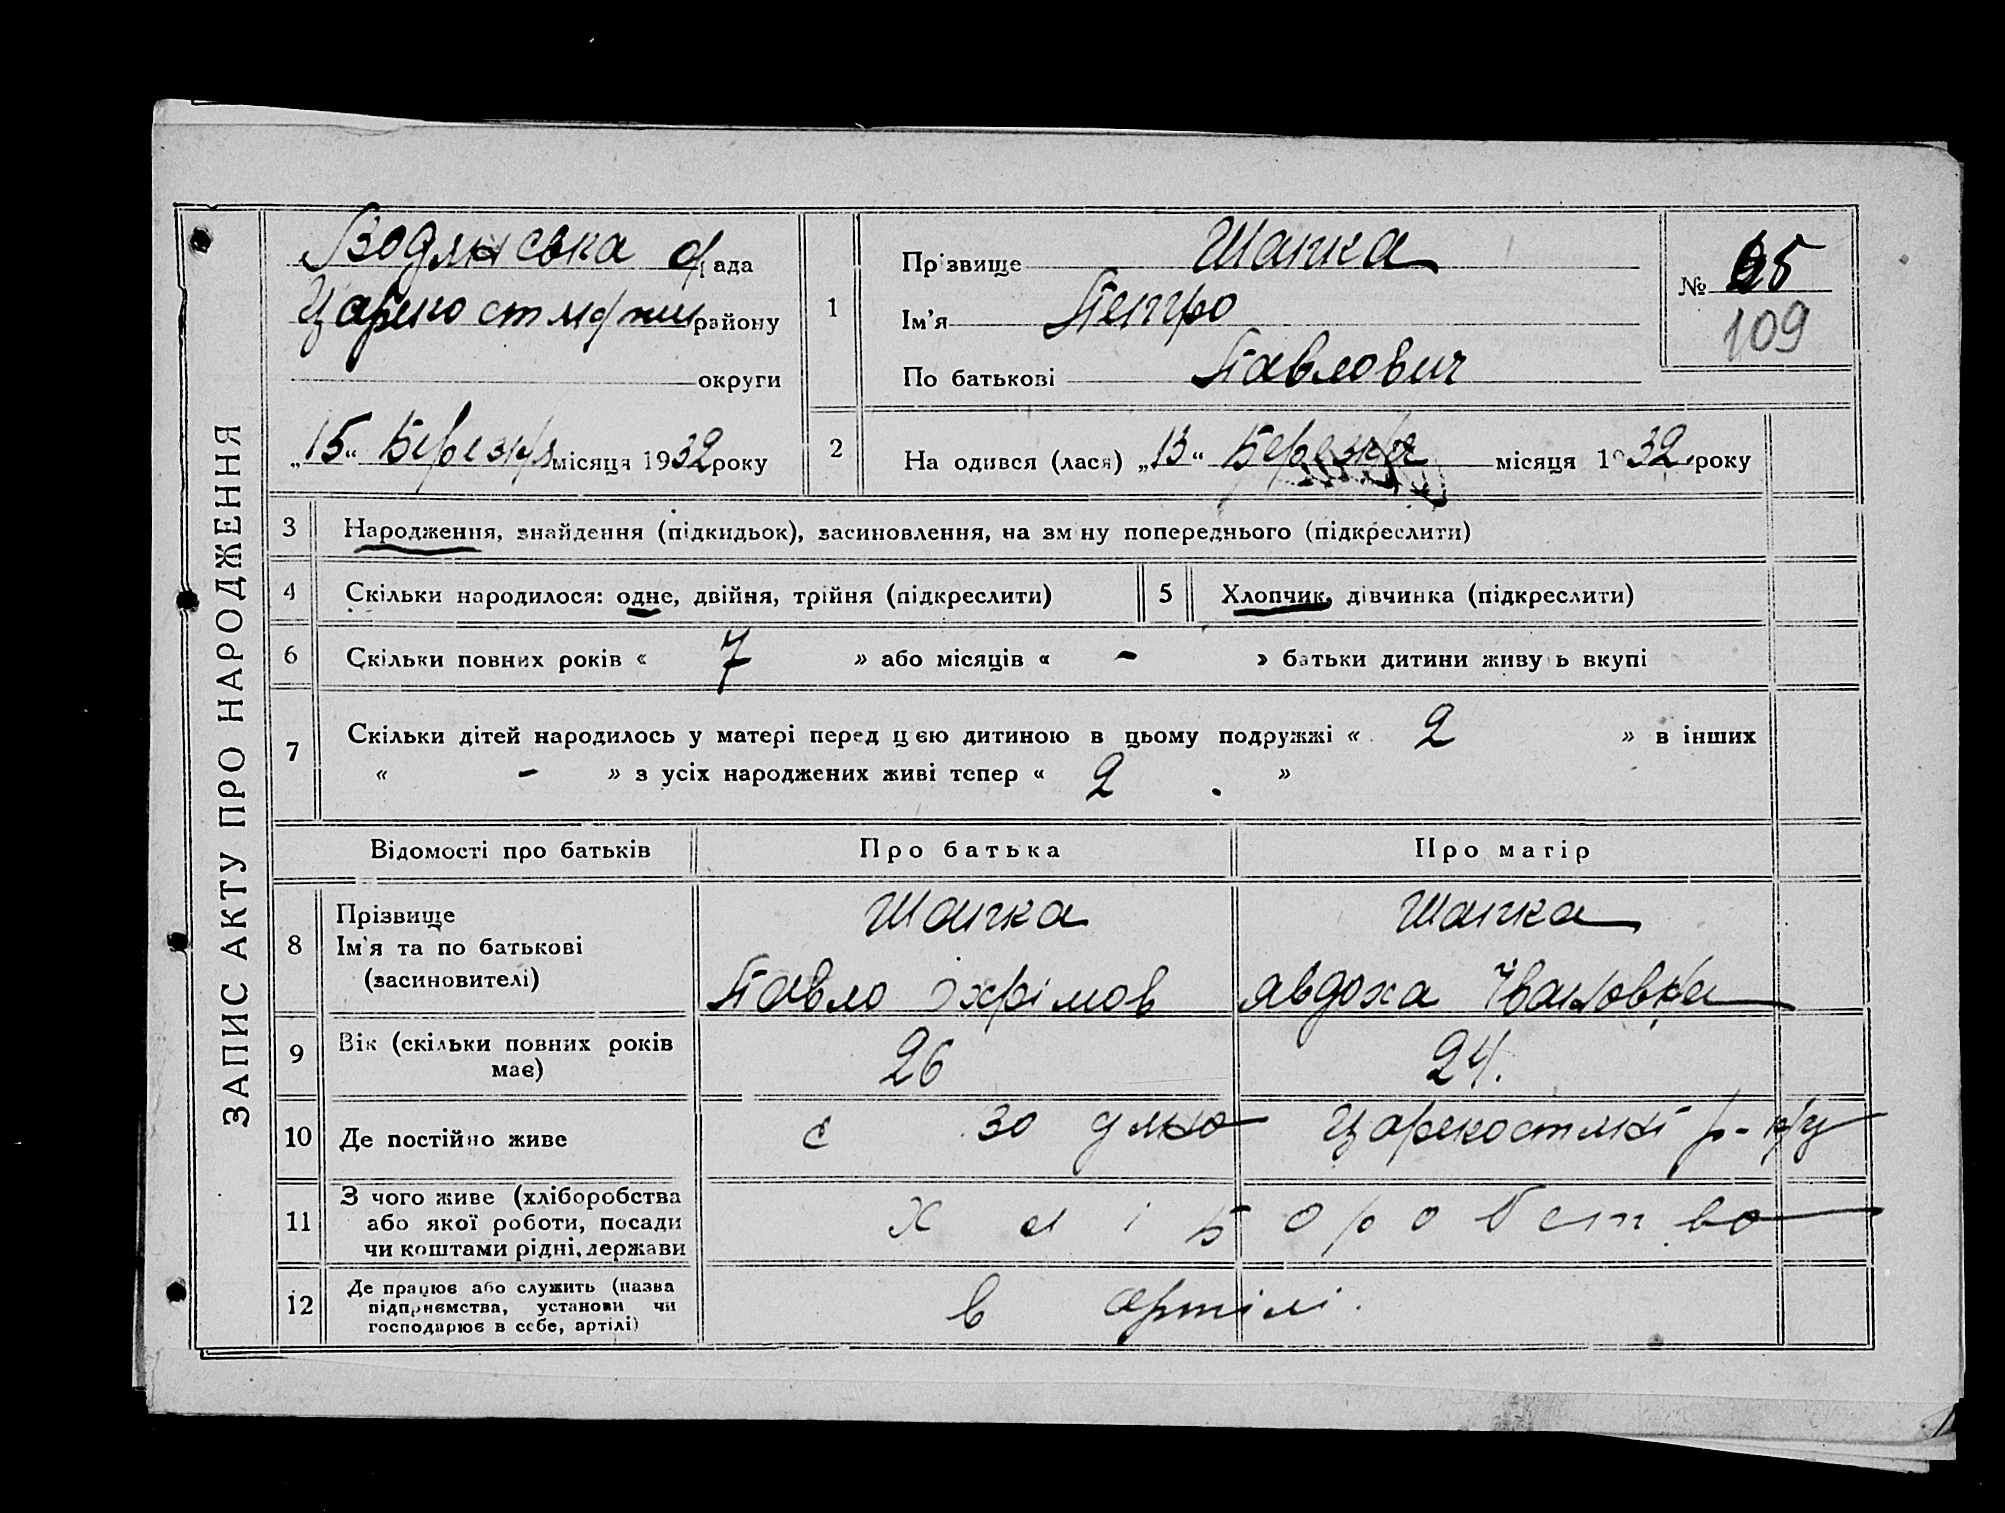 ЗАПИС АКТУ ПРО НАРОДЖЕННЯ
Водянська с/рада
району
округи
„15“ Березня місяця 1932 року
1
Прізвище Шапка
Ім'я Петро
По батькові Павлович
№ 65
109
2
На одився (лася) „13“ Березня місяця 1932 року
3 Народження, знайдення (підкидьок), засиновлення, на зміну попереднього (підкреслити)
4 Скільки народилося: одне, двійня, трійня (підкреслити) 5 Хлопчик, дівчинка (підкреслити)
6 Скільки повних років « 7 » або місяців « - » батьки дитини живу ь вкупі
7 Скільки дітей народилось у матері перед цією дитиною в цьому подружжі « 2 » в інших
« - » з усіх народжених живі тепер « 2 . »
Відомості про батьків Про батька Про матір
8 Прізвище Ім'я та по батькові (засиновителі)
Шапка Шапка
Павло Явдоха Івановна
9 Вік (скільки повних років має) 26 24.
10 Де постійно живе с р-ну
11 З чого живе (хліборобства або якої роботи, посади чи коштами рідні, держави хліборобство
12 Де працює або служить (назва підприємства, установи чи господарює в себе, артілі) в артілі.